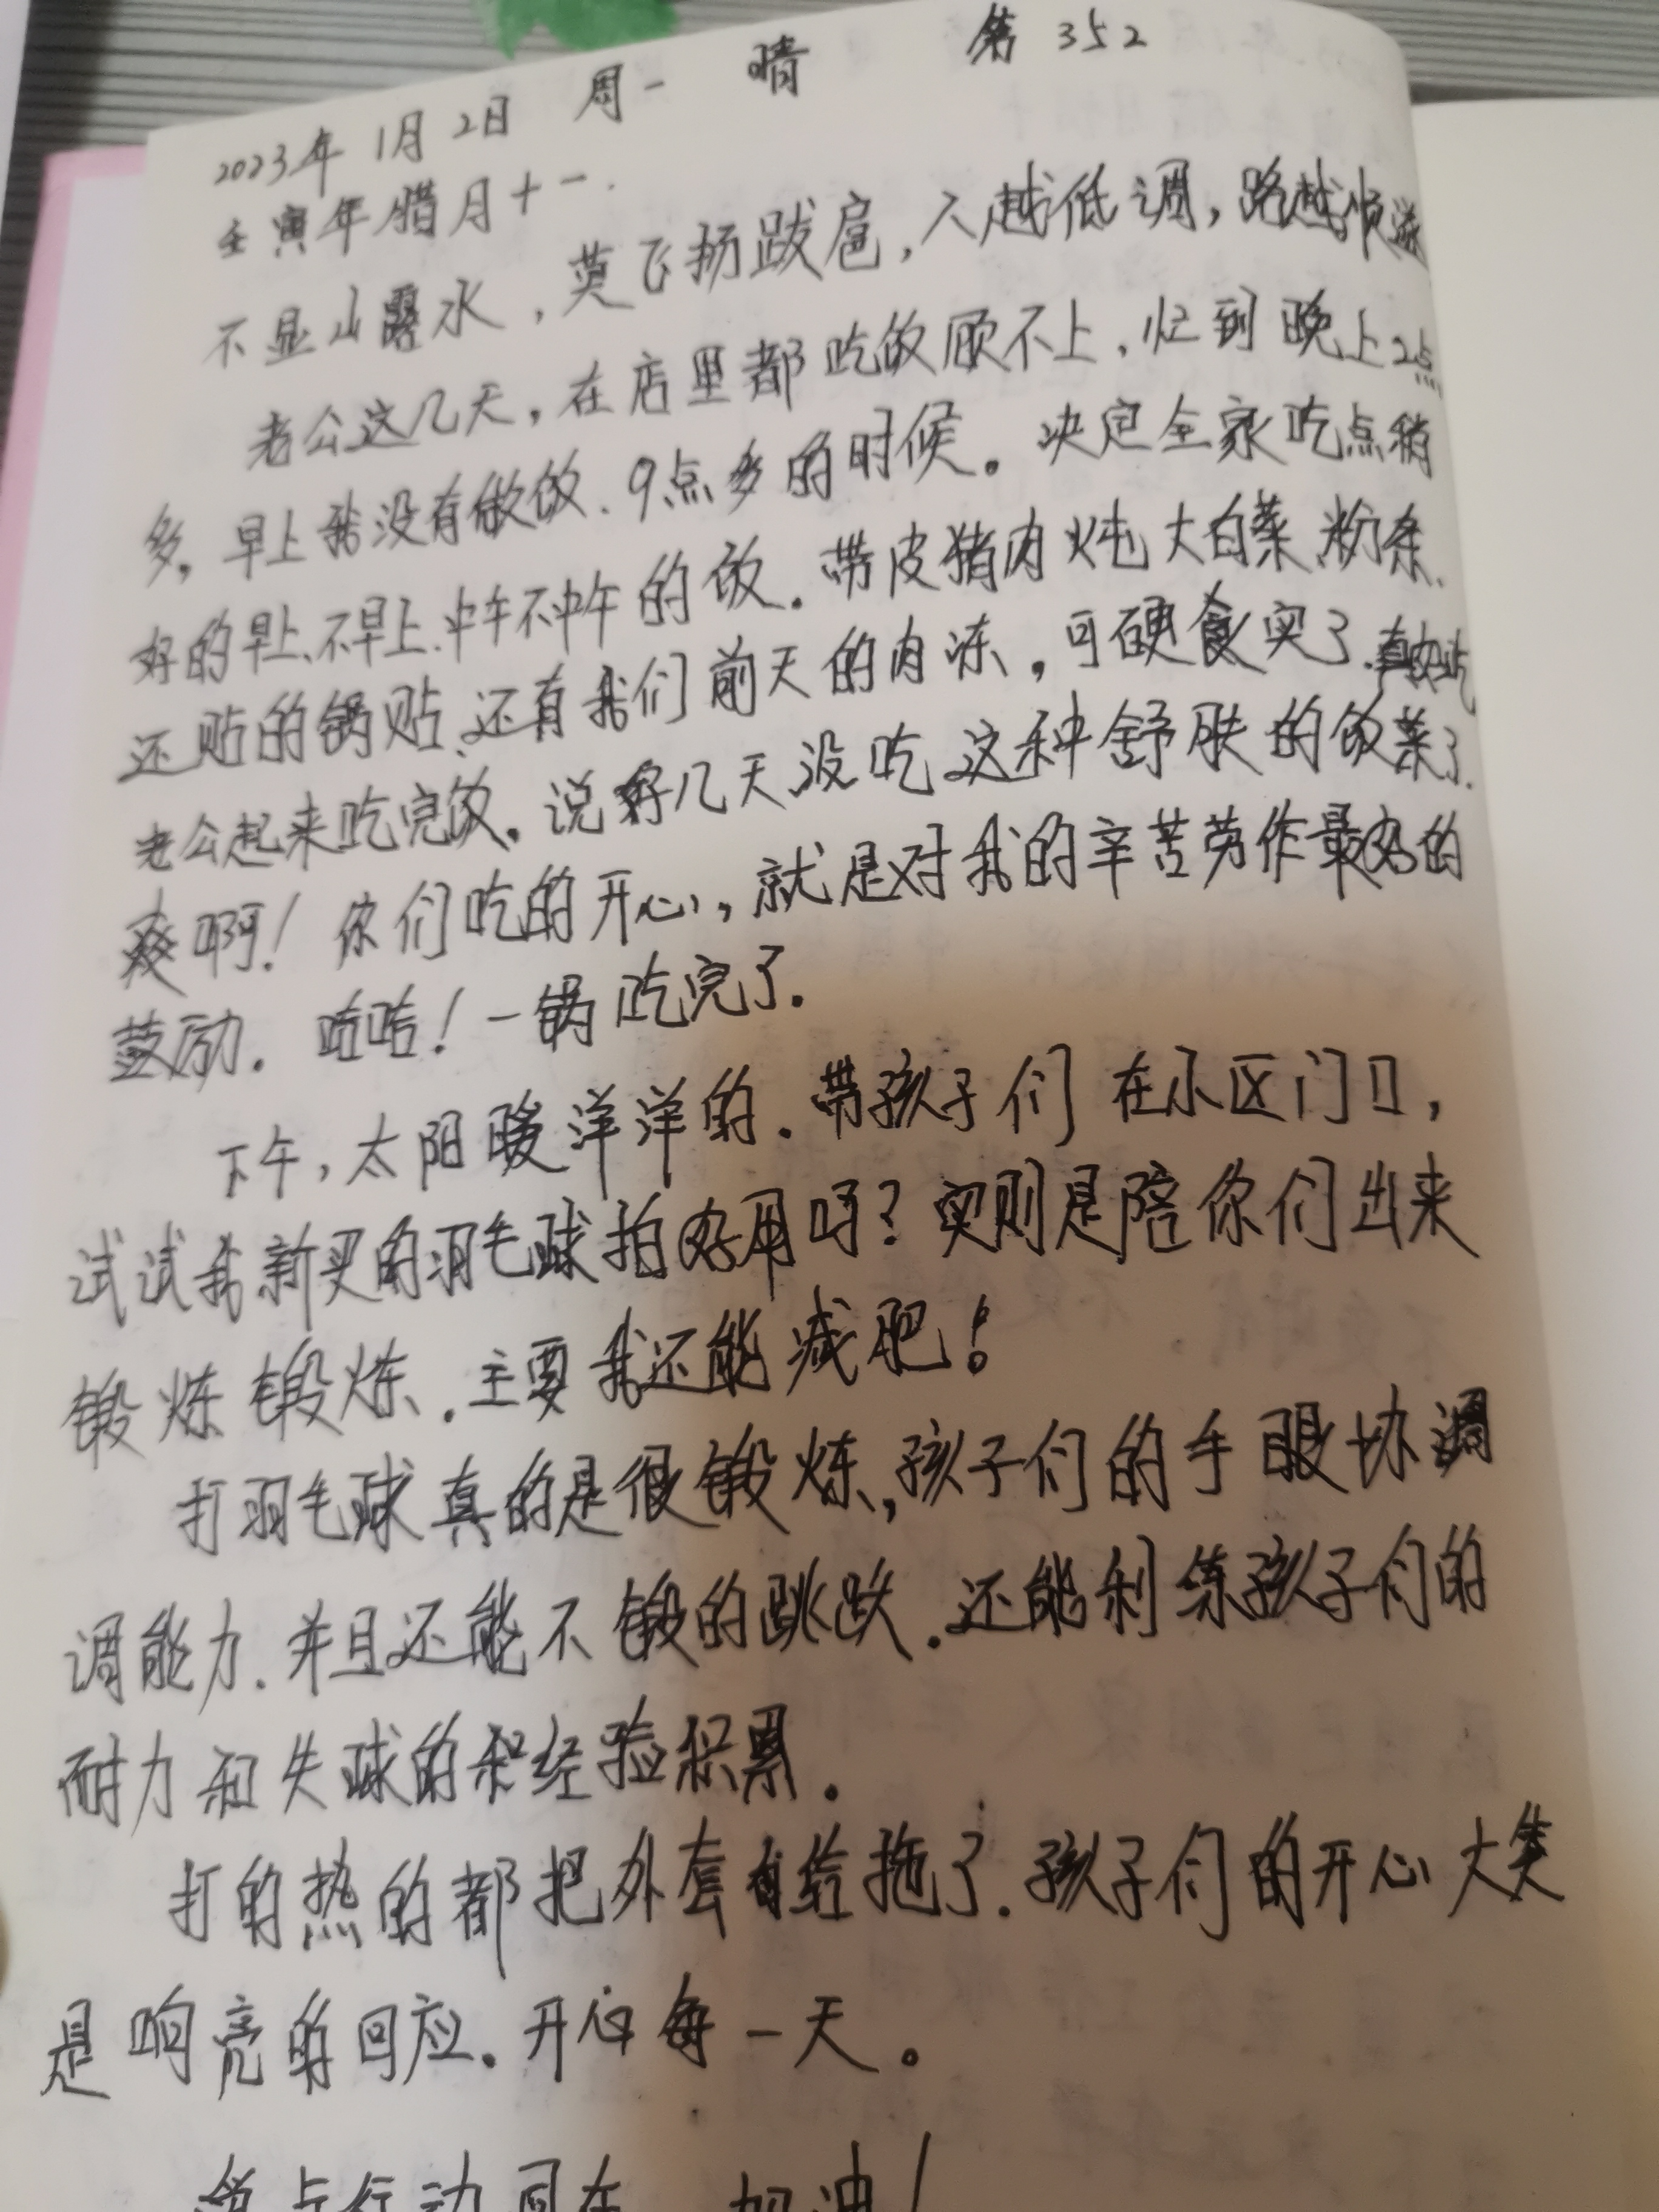 2023年 1月 2日 周一 晴 第 352
壬寅年腊月十一.
不显山露水,莫飞扬跋扈,人越低调,路越顺
老公这几天,在店里都吃饭顾不上,忙到晚上2点
多,早上我没有做饭.9点多的时候。决定全家吃点稍
好的早上、不早上.中午不中午的饭.带皮猪肉炖大白菜.粉条.
还贴的锅贴、还有我们前天的肉冻,可硬食实了.真好吃
老公起来吃完饭,说好几天没吃这种舒肤的饭菜了.
爽啊!你们吃的开心,就是对我的辛苦劳作最好的
鼓励.哈哈!一锅吃完了.
下午,太阳暖洋洋的.带孩子们在小区门口,
试试我新买的羽毛球拍好用吗?实则是陪你们出来
锻炼锻炼.主要我还能减肥!
打羽毛球真的是很锻炼,孩子们的手眼协调
调能力.并且还能不锻的跳跃.还能利练孩子们的
耐力和失球的和经验积累.
打的热的都把外套给拖了.孩子们的开心大笑
是响亮的回应.开心每一天。
行动 加油!